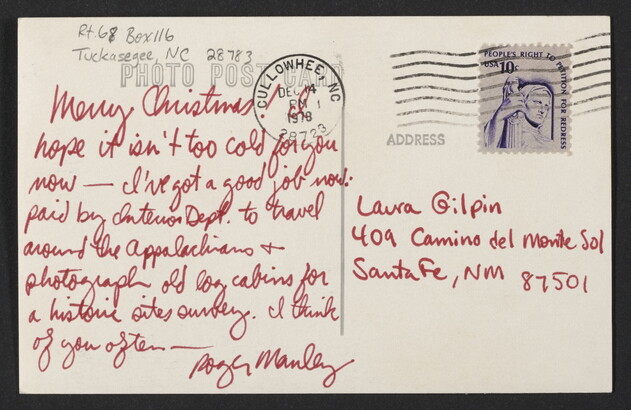 Rt. 68 Box 116
Tuckasegee, NC 28783
PHOTO POST CARD
CULLOWHEE, NC
DEC 14
PM
1978
28723
PEOPLE'S RIGHT TO PETITION FOR REDRESS
USA 10c
Merry Christmas! I
hope it isn't too cold for you
now — I've got a good job now:
paid by Interior Dept. to travel
around the Appalachians +
photograph old log cabins for
a historic sites survey. I think
of you often —
Roger Manley
ADDRESS
Laura Gilpin
409 Camino del Monte Sol
Santa Fe, NM 87501